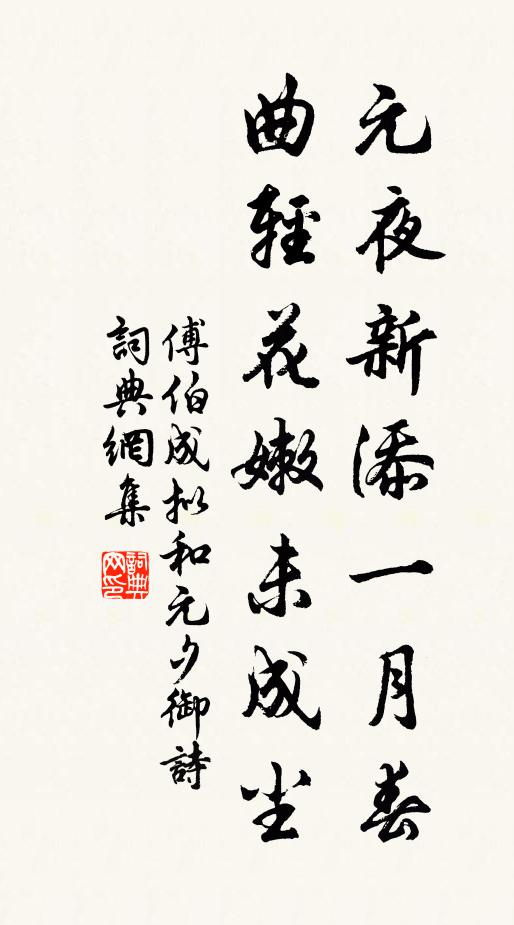 元夜新添一月春
曲輕花嫩未成尘
傅伯成拟和元夕御詩
詞典網集
詞典网印